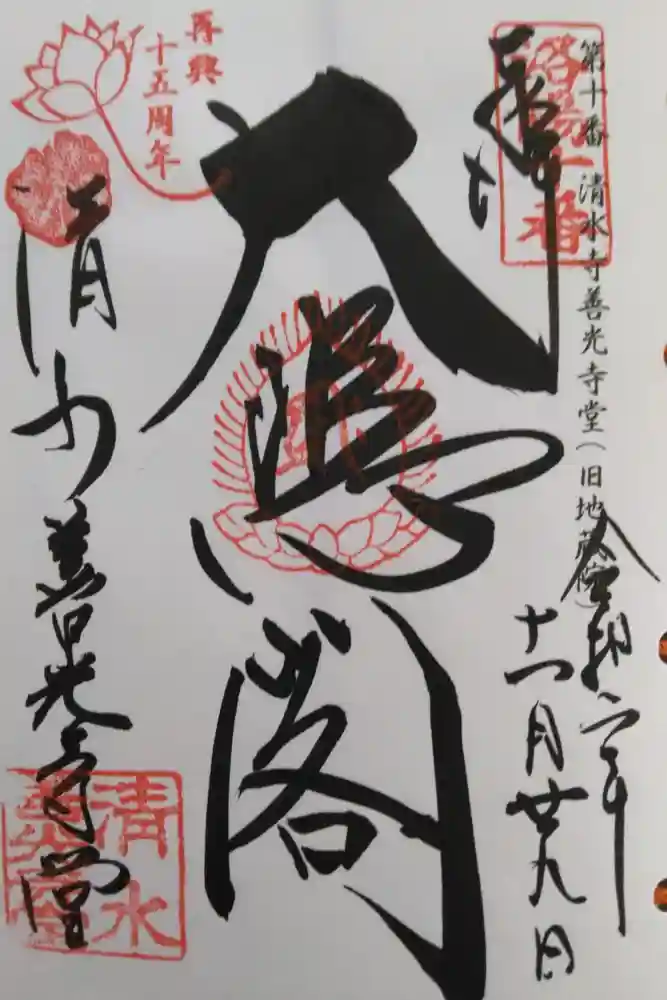 第十番 清水寺善光寺堂(旧地蔵院)
洛陽十番
奉拝
令和二年
十一月廿九日
大悲閣
再興
十五周年
清水
善光寺堂
清水